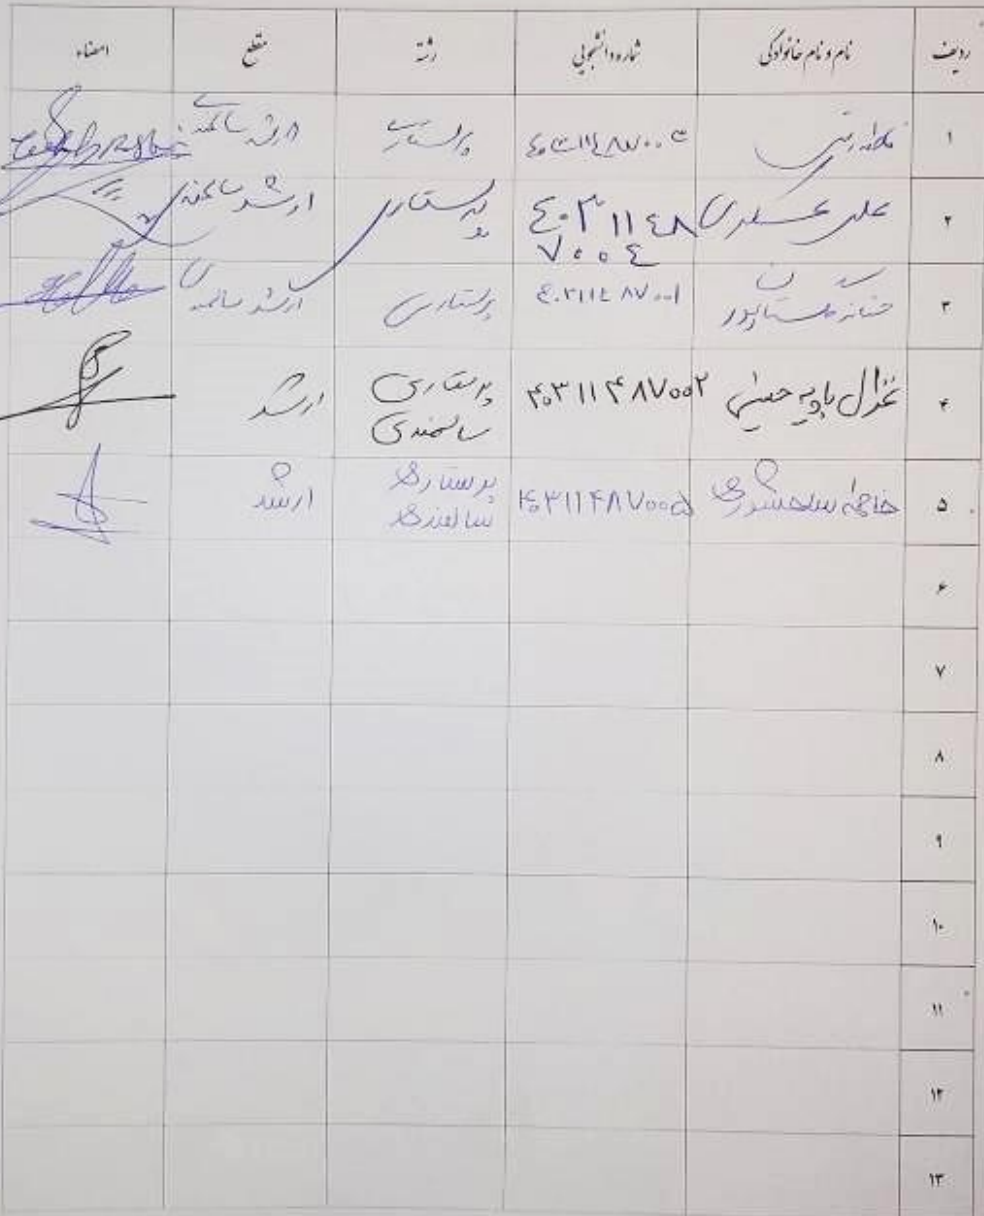 ردیف نام و نام خانوادگی شماره دانشجویی رشته مقطع امضاء
۱ ۴۰۳۱۱۴۸۷۰۰۳ پرستاری ارشد سالمندی
۲ علی عسگری ۴۰۳۱۱۴۸ پرستاری ارشد سالمندی
۷۰۰۴
۳ ۴۰۳۱۱۴۸۷۰۰۱ پرستاری ارشد سالمندی
۴ غزال باویه حسینی ۴۰۳۱۱۴۸۷۰۰۲ پرستاری ارشد
سالمندی
۵ فاطمه سلحشوری ۴۰۳۱۱۴۸۷۰۰۵ پرستاری ارشد
سالمندی
۶
۷
۸
۹
۱۰
۱۱
۱۲
۱۳